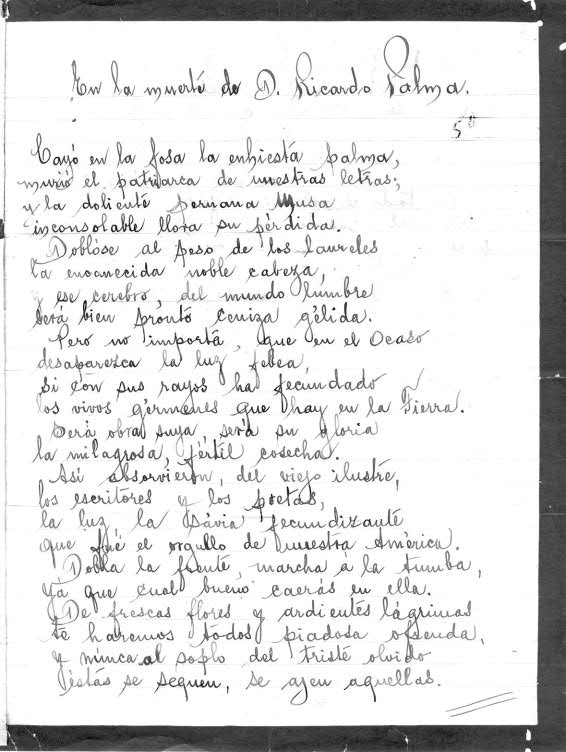 En la muerte de D. Ricardo Palma.
5º
Cayó en la fosa la enhiesta palma,
murió el patriarca de nuestras letras;
y la doliente peruana Musa
inconsolable llora su pérdida.
Doblóse al peso de los laureles
la encanecida noble cabeza,
y ese cerebro, del mundo lumbre
será bien pronto ceniza gélida.
Pero no importa, que en el Ocaso
desaparezca la luz febea,
si con sus rayos ha fecundado
los vivos gérmenes que hay en la Tierra.
Será obra suya, será su gloria
la milagrosa, fértil cosecha.
Así absorvieron, del viejo ilustre,
los escritores y los poetas,
la luz, la sávia fecundizante
que fué el orgullo de nuestra América.
Dobla la frente, marcha á la tumba,
yá que cual bueno caerás en ella.
De frescas flores y ardientes lágrimas
te haremos todos piadosa ofrenda,
y nunca al soplo del triste olvido
éstas se sequen, se ajen aquellas.